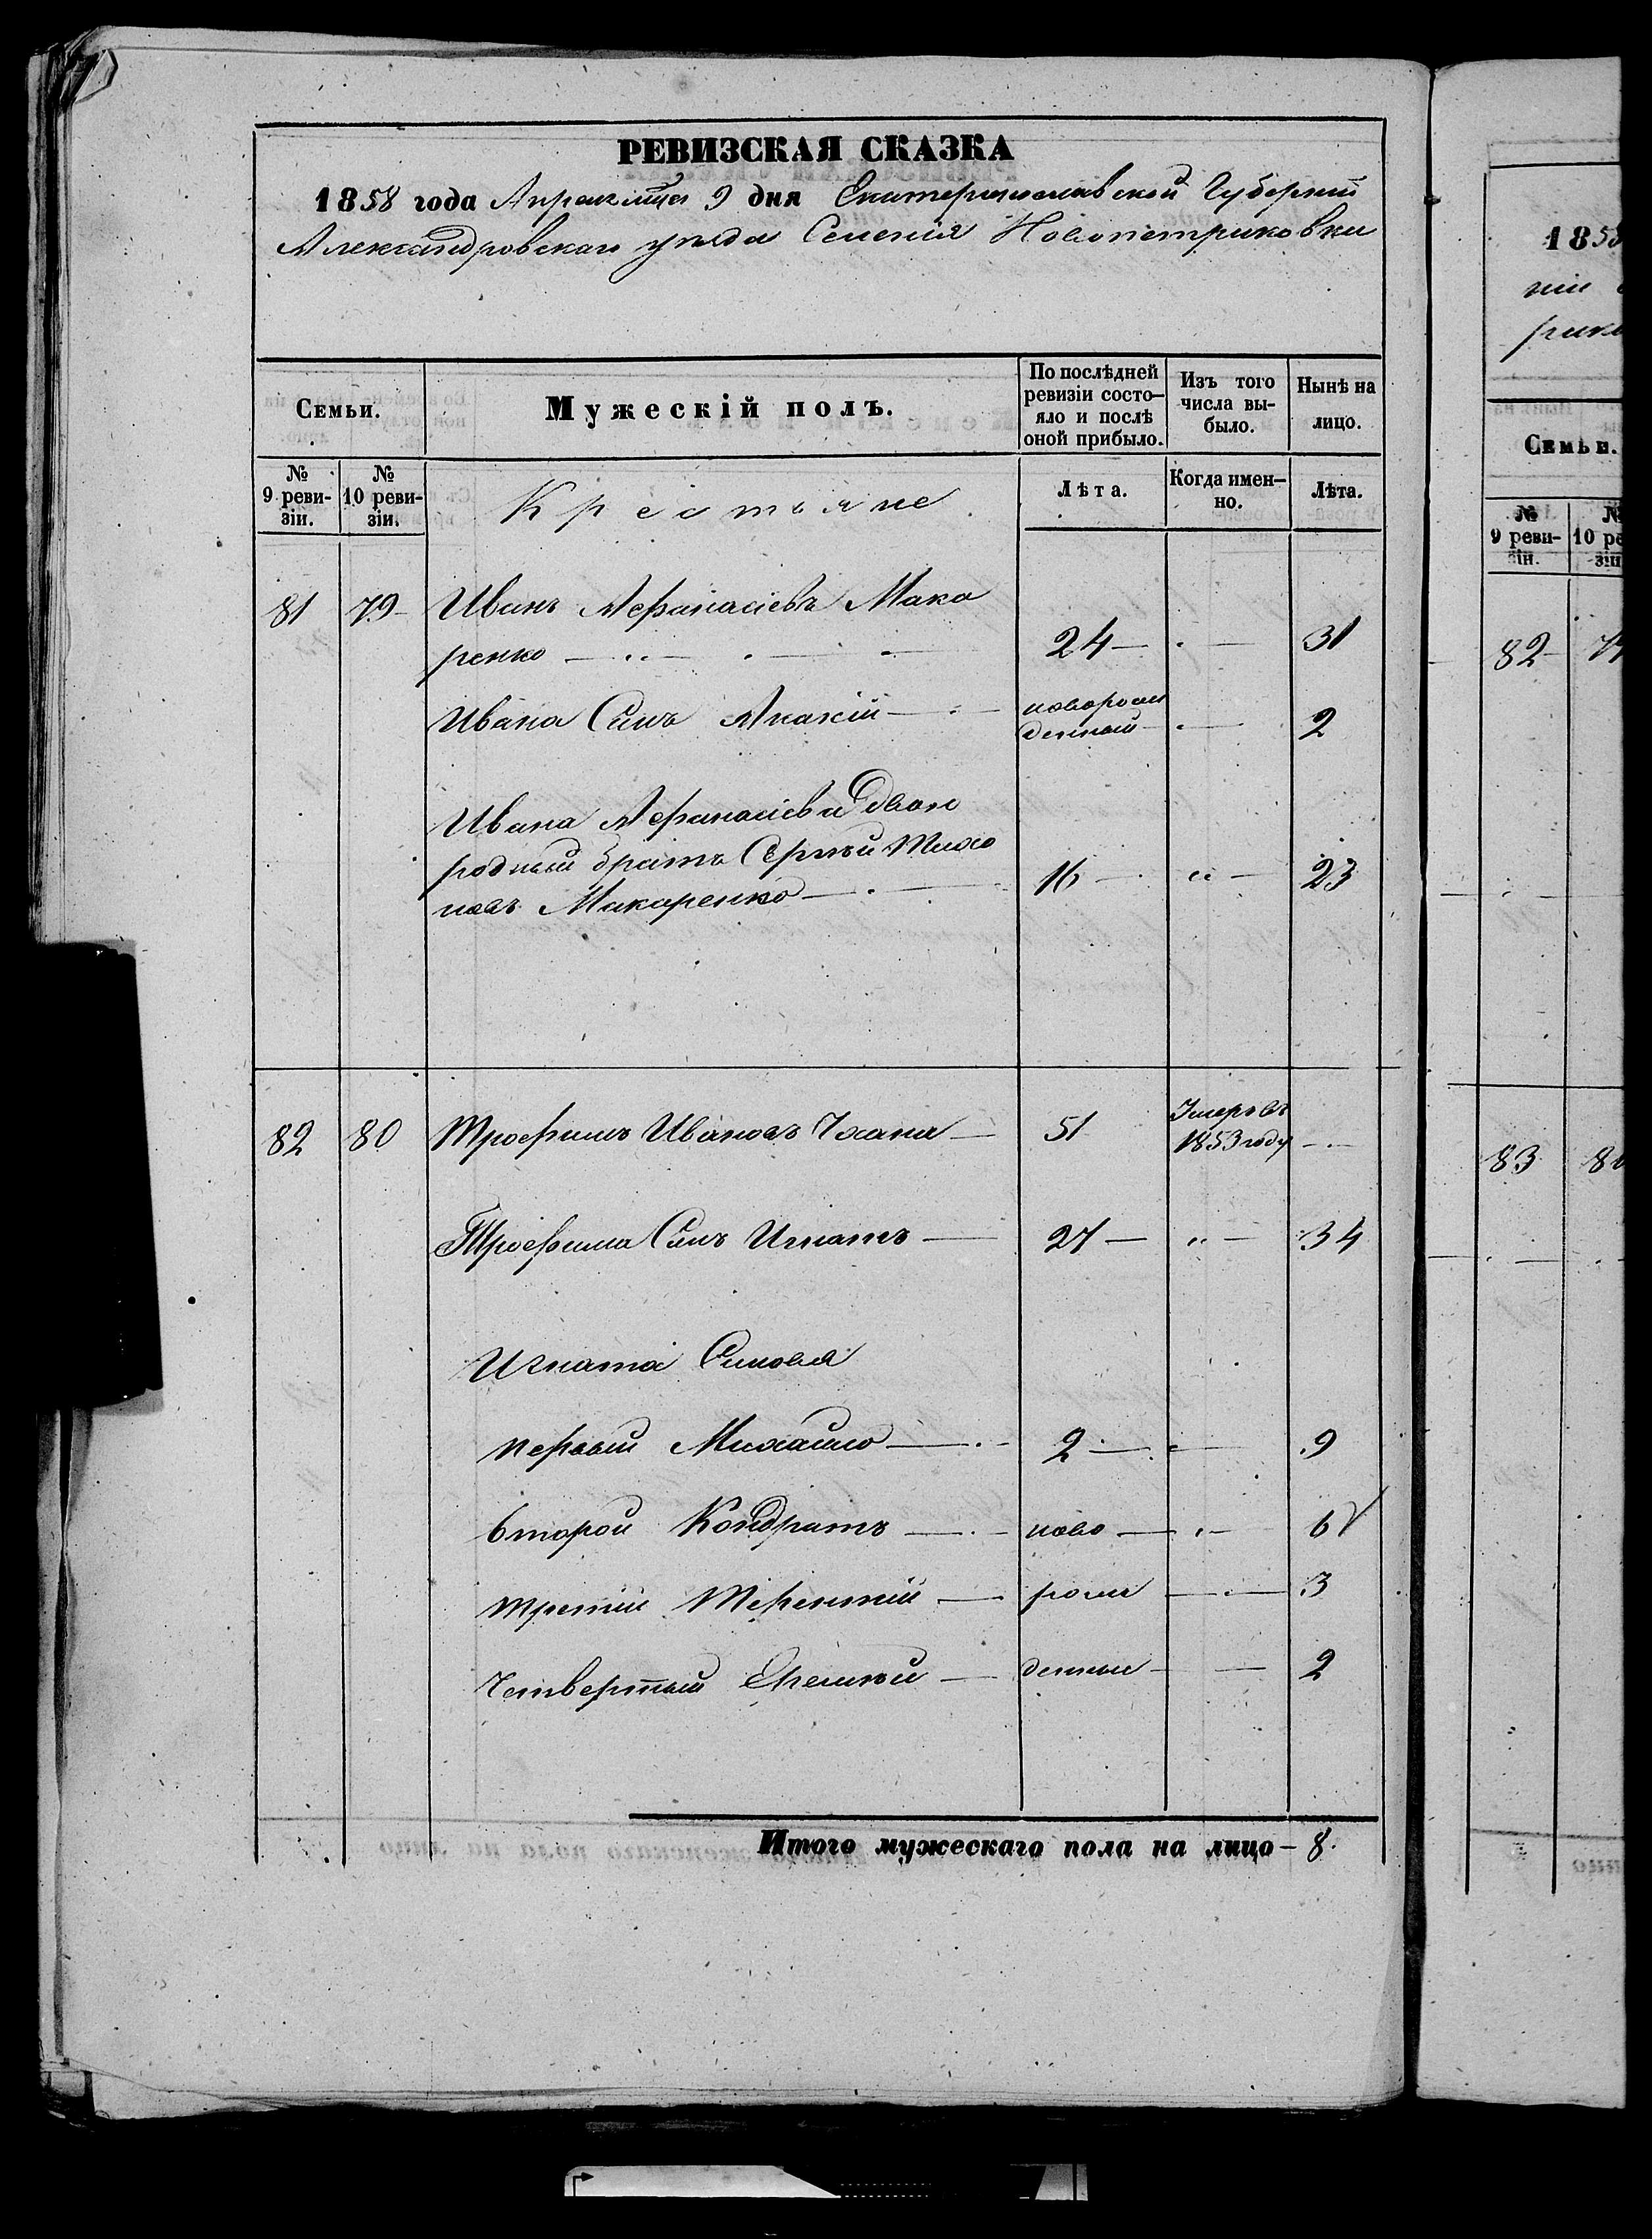 РЕВИЗСКАЯ СКАЗКА
1858 года Апреля месяца 9 дня Екатеринославской Губерніи
Александровскаго уѣзда Селенія Новопетриковки
Семьи.
Мужескій полъ.
По послѣдней ревизіи состо-
яло и послѣ
оной прибыло.
Изъ того
числа вы-
было.
Нынѣ на
лицо.
№
9 реви-
зіи.
№
10 реви-
зіи.
Крестьяне
Лѣта.
Когда имен-
но.
Лѣта.
81 79 Иванъ Афанасіевъ Мака
ренко 24 31
Ивана Сынъ Акакій новорож
денный 2
Ивана Афанасіева двою
родный братъ Сергѣй Тихо
новъ Макаренко 16 23
82 80 Трофимъ Ивановъ 51 Умеръ въ
1853 году
Трофима Сынъ Игнатъ 27 34
Игната Сыновья
первый Михайло 2 9
второй Кондратъ ново 6
третій Терентій рож 3
Четвертый Еремѣй денные 2
Итого мужескаго пола на лицо 8.
1858
ніи
рико
Семьи.
№
9 реви-
зіи.
№
10 ре
зіи
82
83